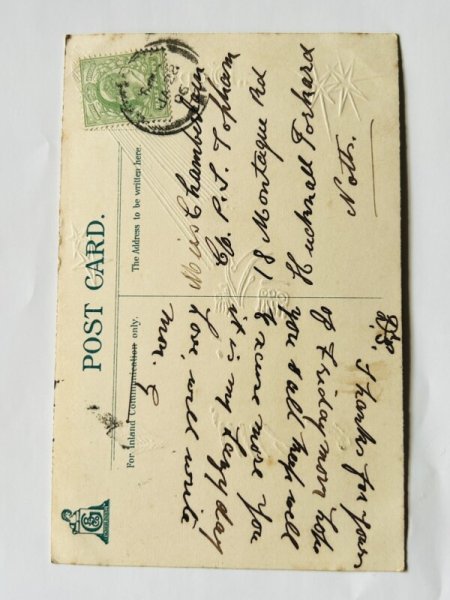 POST CARD.
For Inland Communication only.
The Address to be written here.
Thanks for yours
of Friday morn hope
you all keep well
Excuse more you
it is my Lazy day
love will write
mon. G
Miss Chamberlain
C/o P. S. Topham
18 Montague Rd
Hucknall Torkard
Notts.